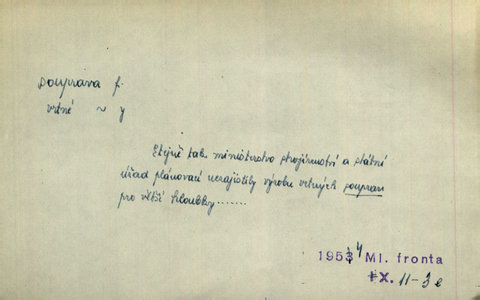 souprava f.
vrtné ~ y
Stejně tak ministerstvo strojírenství a státní
úřad plánovací nezajistily výrobu vrtných souprav
pro větší hloubky.......
1954 Ml. fronta
IX. 11-3 e